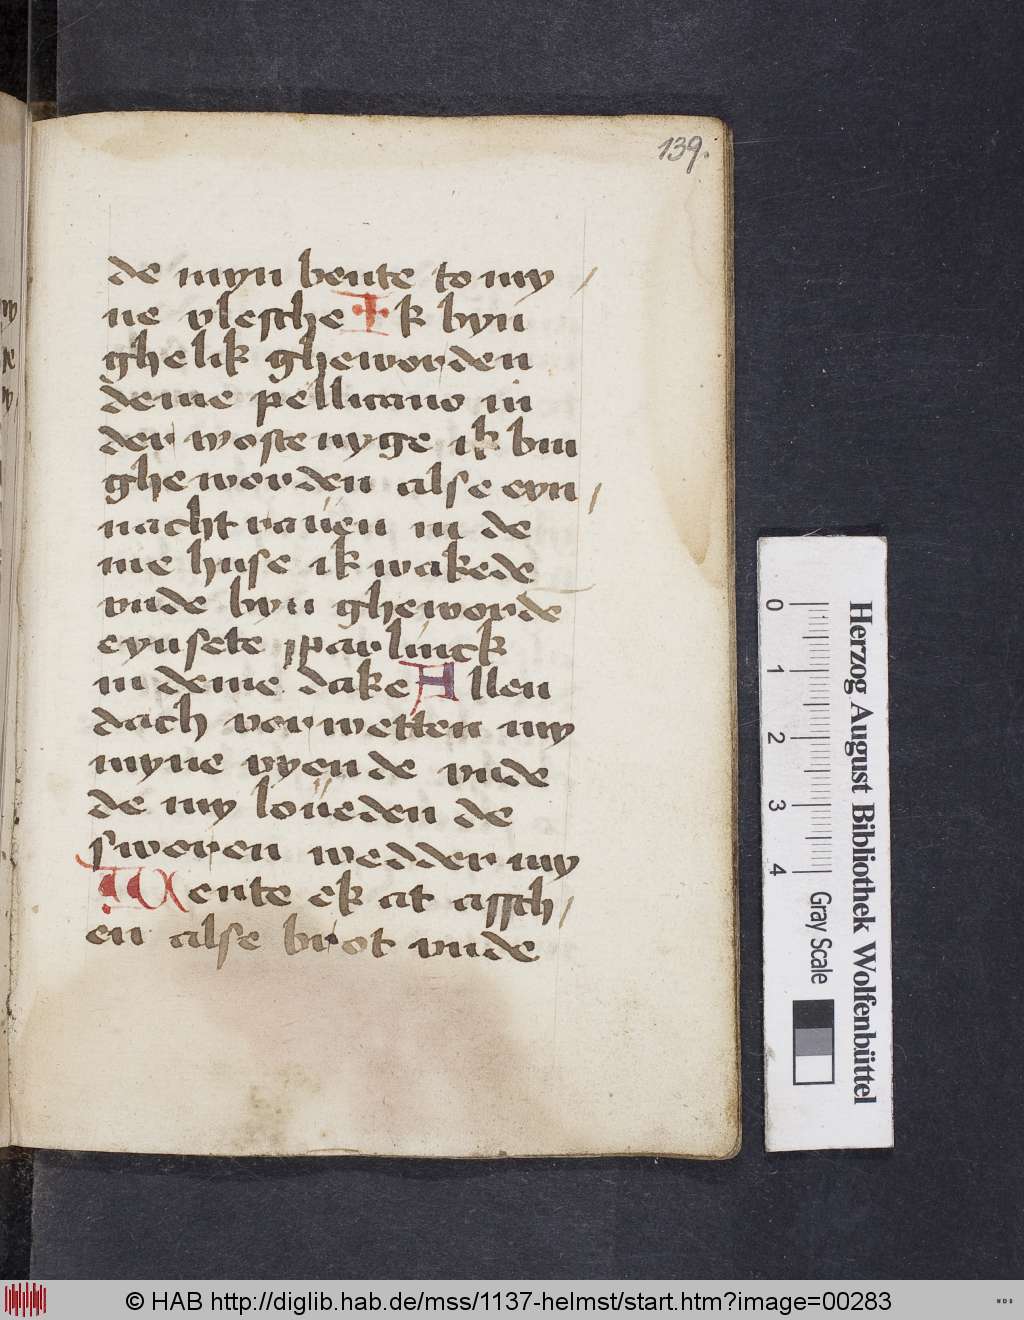 139.
de myn bente to my /
ne vlesche Ik byn
ghelik gheworden
deme pellicano in
der wostenyge ik bin
gheworden alse eyn /
nachtrauen in de
me huse ik wakede
vnde byn gheworde
eynsete sparlinck
in deme dake Allen
dach vorwetten my
myne vyende vnde
de my loueden de
sworen wedder my
Wente ek at assch /
en alse brot vnde
Herzog August Bibliothek Wolfenbüttel
0 1 2 3 4 Gray Scale
© HAB http://diglib.hab.de/mss/1137-helmst/start.htm?image=00283